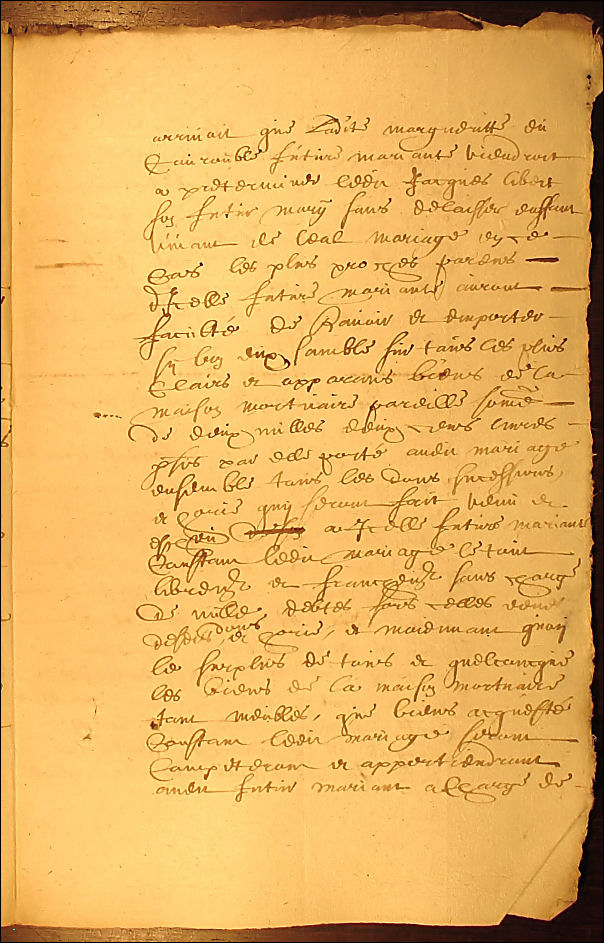 arrivait que ladite margueritte du
Courouble future mariante viendroit
a predeterminer ledit Jacques libert
son futur mary sans delaisser enffant
vivant de leal mariage en ce
Cas les plus proches parens
d'Icelle future mariante auront
faculté de Ravoir et emporter
sy bon eux samble sur tous les plus
Clairs et apparans biens de la
maison mortuaire pareille some
de deux milles deux cens livres
par elle porté audit mariage
ensemble tous les dons successions
et hoirie quy seront fait venu et
escheu a Icelle future mariante
Constant ledit mariage le tout
librement et franchement sans charge
de nulle debtes fors celles venus
desdits dons et hoirie, et moiennant quoy
le surplus de tous et quelconque
les biens de la maison mortuaire
tant meubles, que biens acquesté
Constant ledit mariage seront
Competeront et appartiendront
audit futur mariant a Charge de